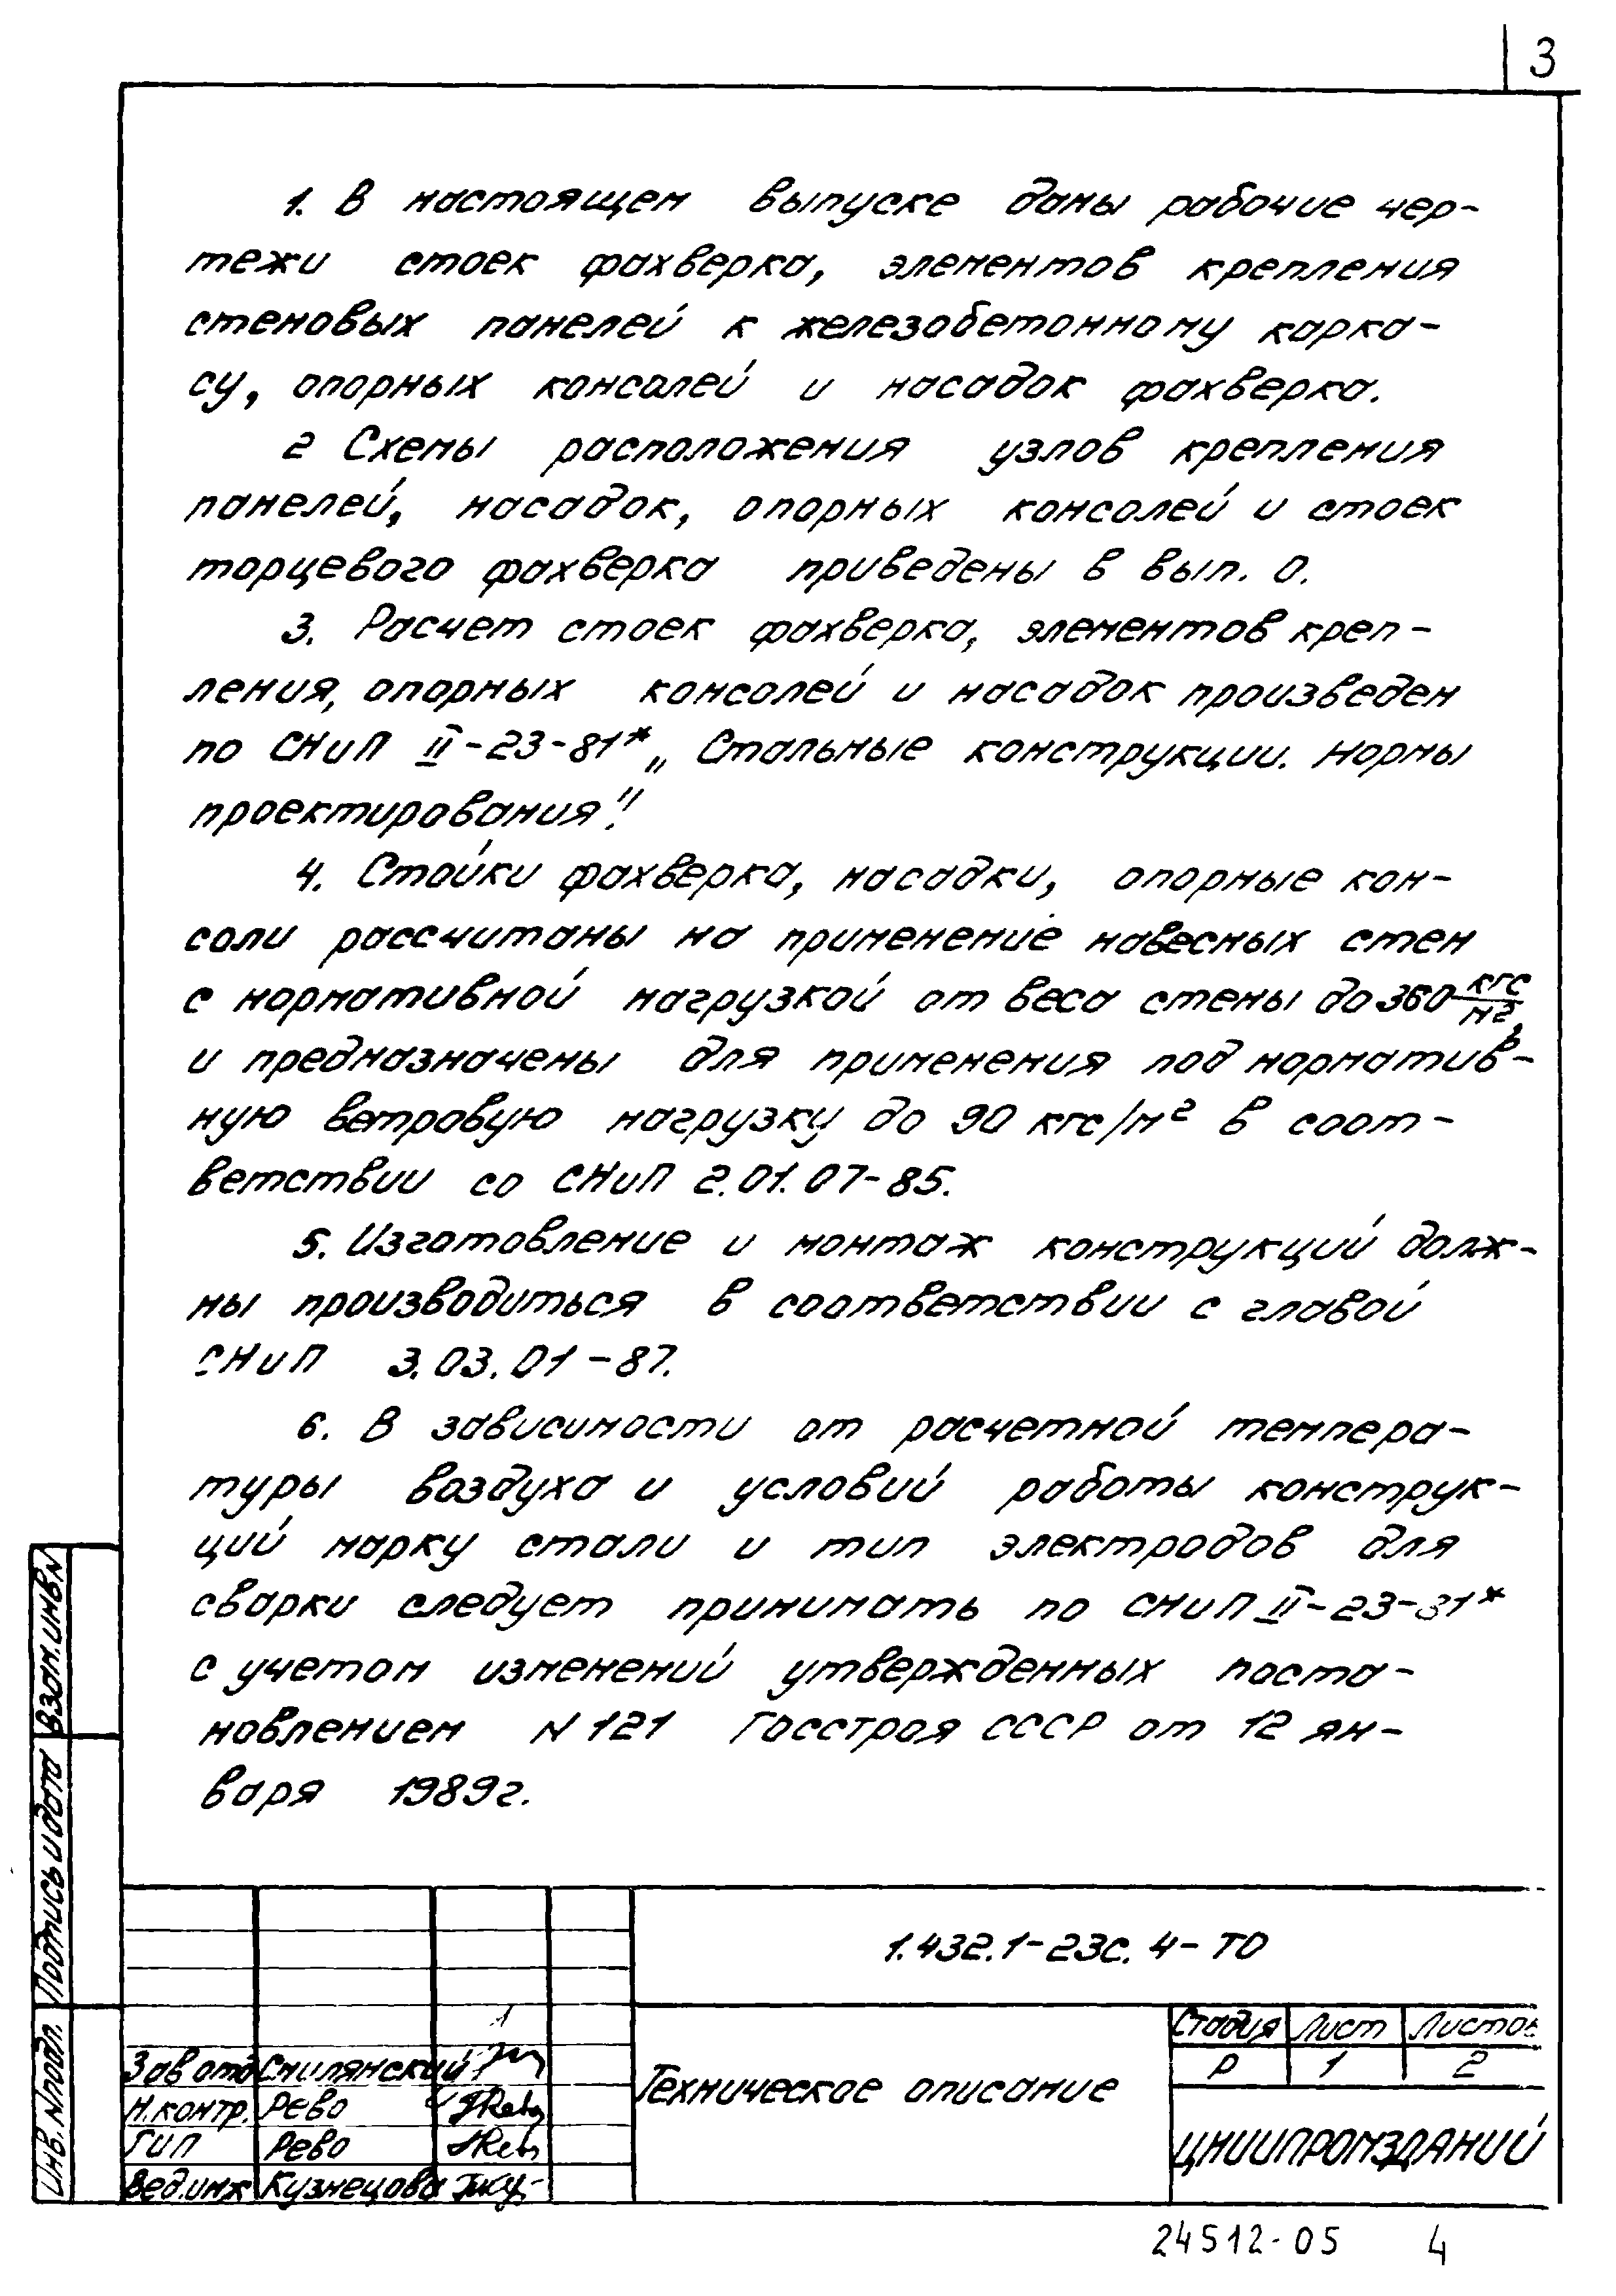 3
1. В настоящем выпуске даны рабочие чер-
тежи стоек фахверка, элементов крепления
стеновых панелей к железобетонному карка-
су, опорных консолей и насадок фахверка.
2 Схемы расположения узлов крепления
панелей, насадок, опорных консолей и стоек
торцевого фахверка приведены в вып. 0.
3. Расчет стоек фахверка, элементов креп-
ления, опорных консолей и насадок произведен
по СНиП II-23-81* „Стальные конструкции. Нормы
проектирования".
4. Стойки фахверка, насадки, опорные кон-
соли рассчитаны на применение навесных стен
с нормативной нагрузкой от веса стены до 360 кгс/м²,
и предназначены для применения под норматив-
ную ветровую нагрузку до 90 кгс/м² в соот-
ветствии со СНиП 2.01.07-85.
5. Изготовление и монтаж конструкций долж-
ны производиться в соответствии с главой
СНиП 3.03.01-87.
6. В зависимости от расчетной темпера-
туры воздуха и условий работы конструк-
ций марку стали и тип электродов для
сварки следует принимать по СНиП II-23-81*
с учетом изменений утвержденных поста-
новлением N 121 Госстроя СССР от 12 ян-
варя 1989г.
Взам.инв.N
Подпись и дата
Инв.Nподл.
1.432.1-23с.4-ТО
Зав отд Смилянский
Н.контр. Рево
ГИП Рево
Вед.инж Кузнецова
Техническое описание
Стадия Лист Листов
Р 1 2
ЦНИИПРОМЗДАНИЙ
24512-05 4